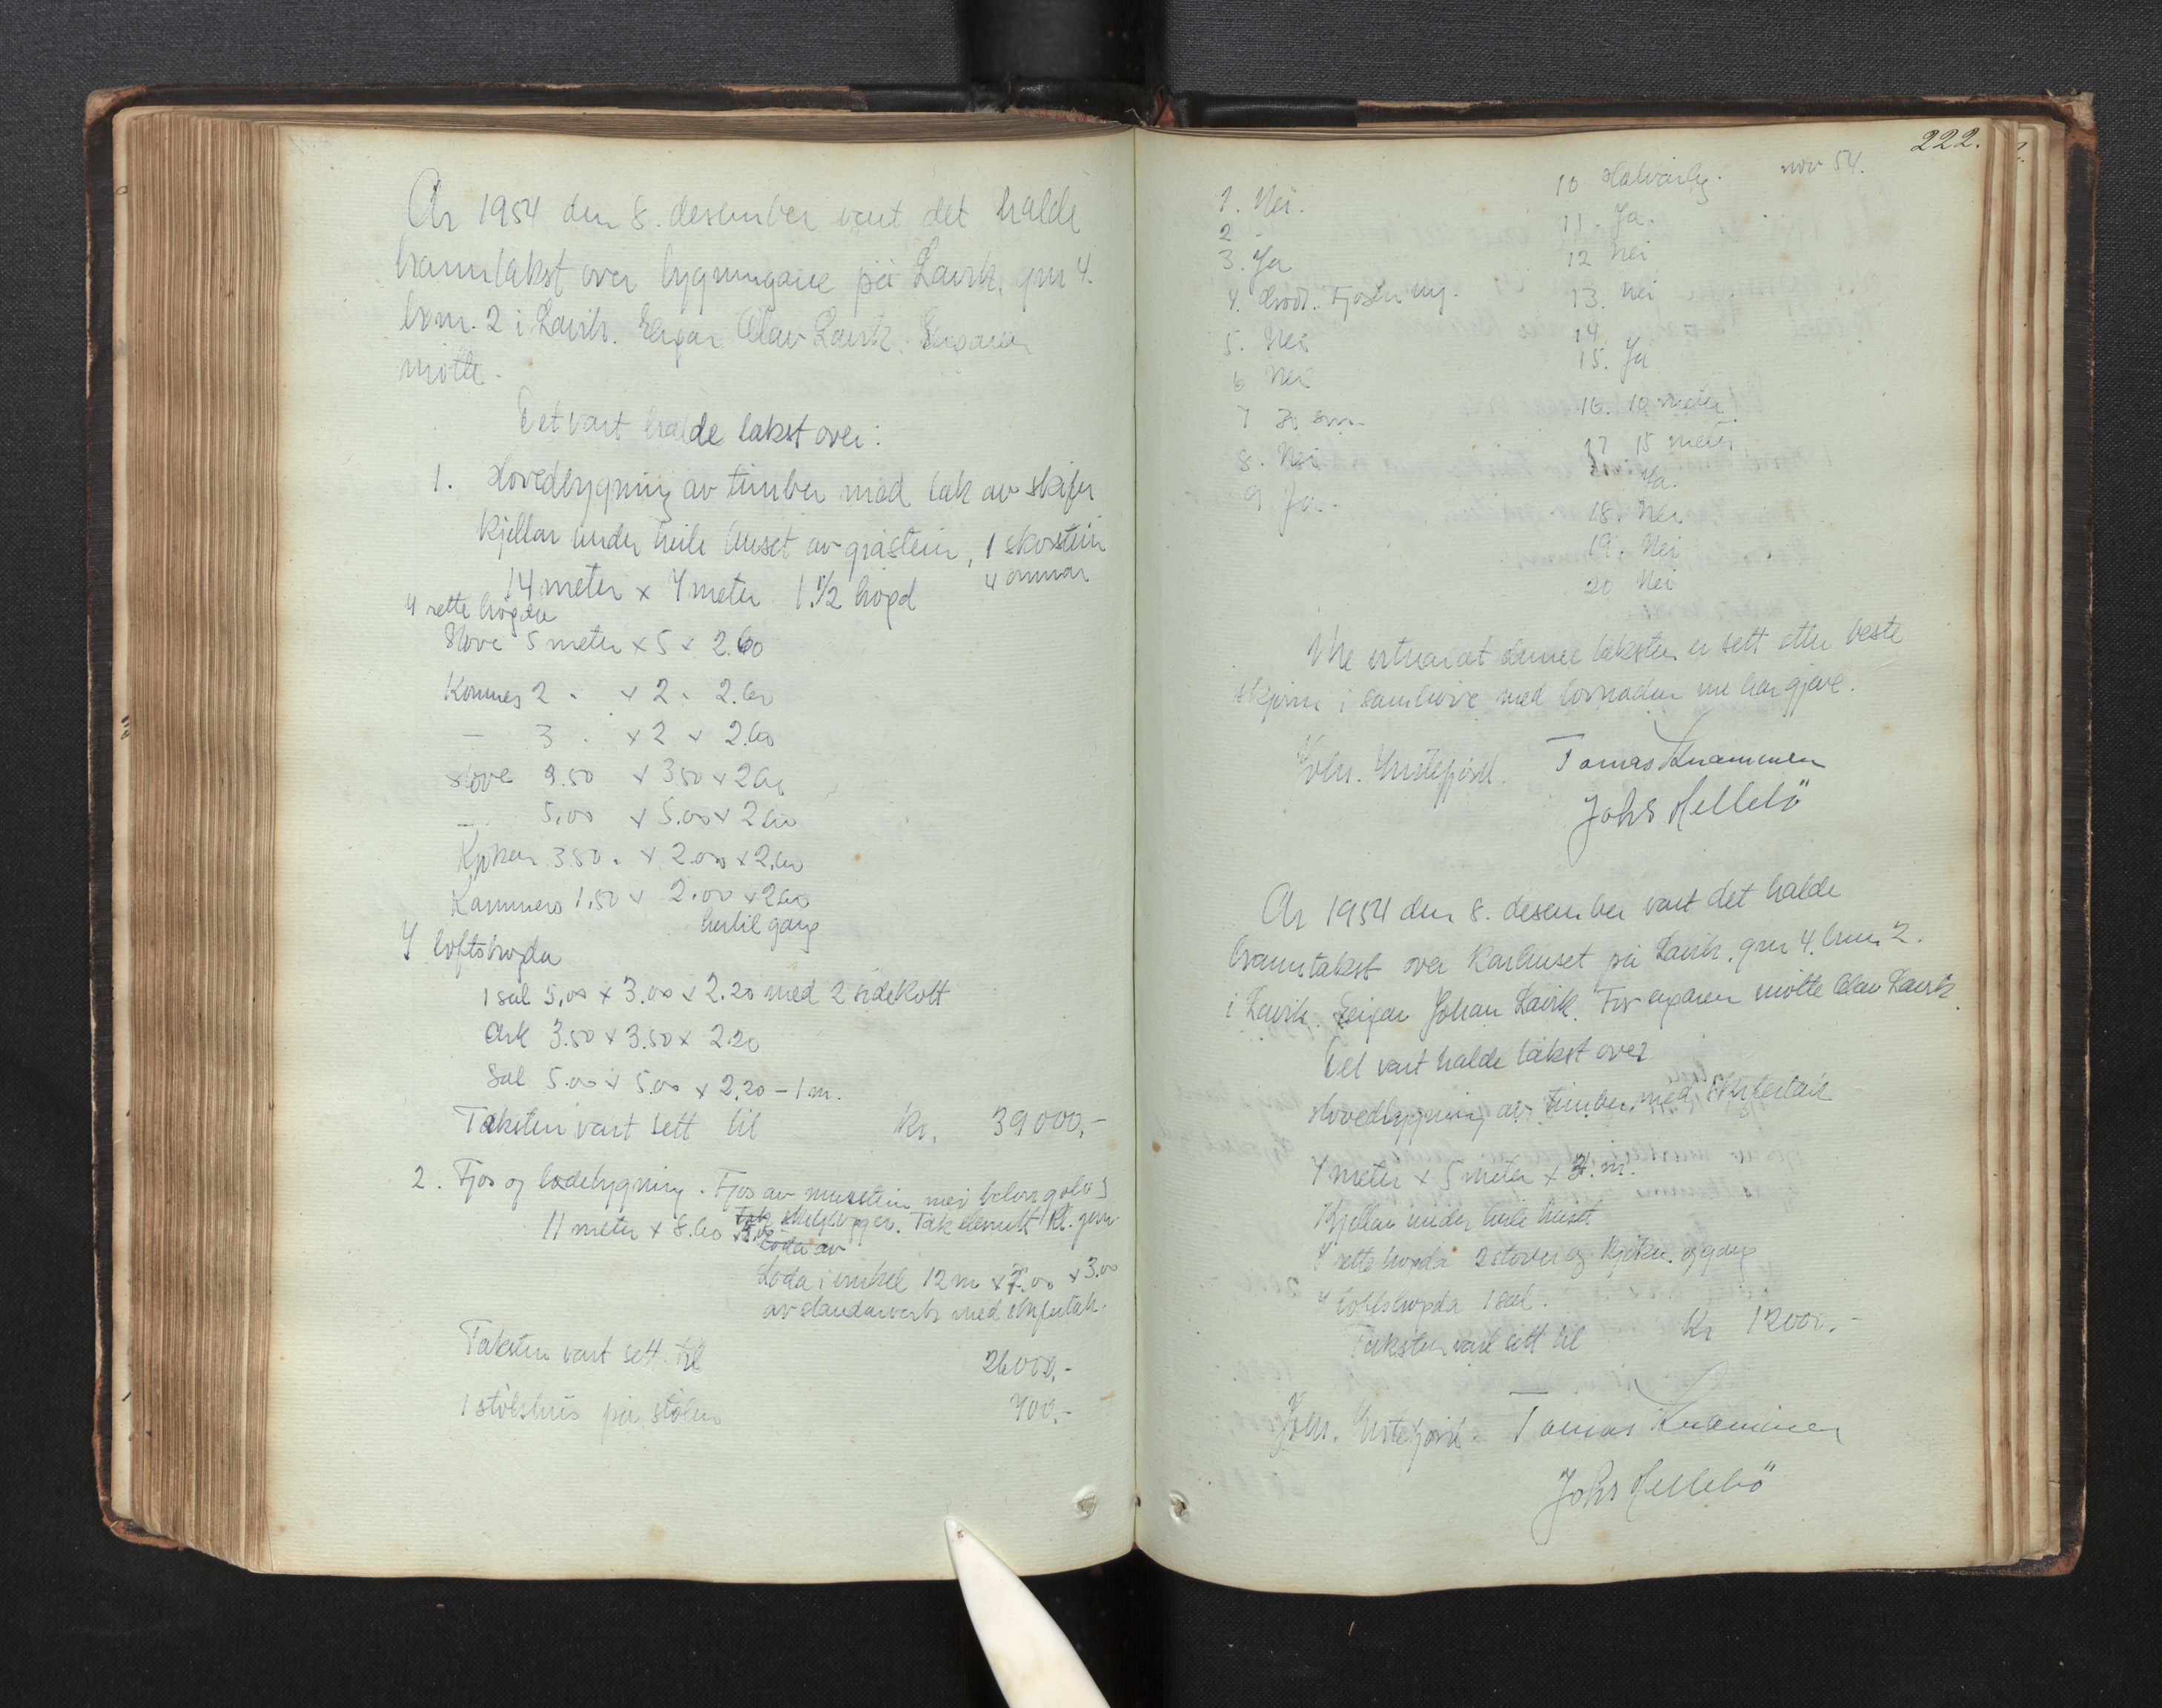 År 1954 den 8. desember vart det halde
branntakst over bygningane på Lavik, gnr 4.
brnr. 2 i Lavik. Eigar Olav Lavik. Eigaren
møtte.
Det vart halde takst over:
1. Hovedbygning av timber med tak av skifer
Kjellar under heile huset av gråstein, 1 skorstein
14 meter x 7 meter 1 1/2 høgd 4 omnar
I rette høgda
Stove 5 meter x 5 x 2.60
Kammes 2 . x 2 . 2.60
— 3 . x 2 x 2.60
Stove 3.50 x 3.50 x 2.60
— 5.00 x 5.00 x 2.60
Kjøken 3.50 . x 2.00 x 2.60
Kammers 1.50 x 2.00 x 2.60
hertil gang
I loftshøgda
1 sal 5.00 x 3.00 x 2.20 med 2 sidekott
Ark 3.50 x 3.50 x 2.20
Sal 5.00 x 5.00 x 2.20 - 1 m.
Taksten vart sett til kr. 39000,-
2. Fjos og lødebygning. Fjos av murstein med betong golv
11 meter x 8.60 Tak
Løda av
Løda i vinkel 12 m x 7.00 x 3.00
av standarverk med skifertak.
Taksten vart sett til 26000.-
1 stølshus på stølen 400.-
222.
nov 54.
1. Nei.
2 -
3. Ja
4. Hovd. Fjosen ny.
5. Nei
6 Nei
7 30 cm.
8. Nei
9 Ja.
10 Halvårleg.
11. Ja.
12 Nei
13. Nei
14.
15. Ja
16. 10 meter
17 15 meter
Ja.
18. Nei
19. Nei
20 Nei
Me vitnar at denne taksten er sett etter beste
skjøn i samhøve med lovnaden me har gjeve.
Joh. Ystefjord. Tomas Knammen
Johs Hellebö
År 1954 den 8. desember vart det halde
branntakst over Kårhuset på Lavik, gnr 4. brnr 2.
i Lavik. Eigar Johan Lavik. For eigaren møtte Olav Lavik.
Det vart halde takst over
Hovedbygning av timber med skifertak
7 meter x 5 meter x 3. m.
Kjellar under heile huset
I rette høgda 2 stover og kjøken og gang
I loftshøgda 1 sal.
Taksten vart sett til kr 12000.-
Joh. Ystefjord. Tomas Knammen
Johs Hellebö